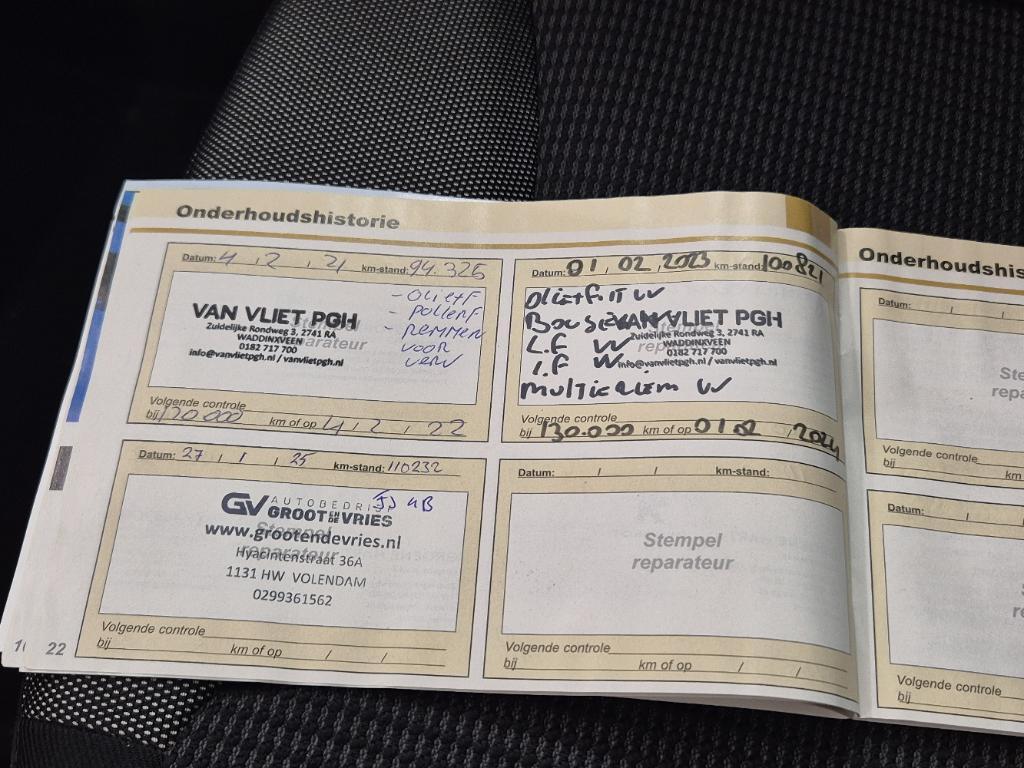 Onderhoudshistorie
Datum: 4 , 2 , 21 km-stand: 94.325
- OLIE+F
- pollenf
- Remmen
voor
VAN VLIET PGH
Zuidelijke Rondweg 3, 2741 RA
WADDINXVEEN
0182 717 700
info@vanvlietpgh.nl / vanvlietpgh.nl
Volgende controle
bij 120.000 km of op 4 , 2 , 22
Datum: 01 , 02 , 2023 km-stand: 100821
VAN VLIET PGH
Zuidelijke Rondweg 3, 2741 RA
WADDINXVEEN
0182 717 700
info@vanvlietpgh.nl / vanvlietpgh.nl
L.F W
I.F W
MULTIRIEM W
Volgende controle
bij 130.000 km of op 01 02 / 2024
Datum: 27 , 1 , 25 km-stand: 110232
GV AUTOBEDRIJF
GROOT EN DE VRIES
www.grootendevries.nl
Hyacintenstraat 36A
1131 HW VOLENDAM
0299361562
Stempel
reparateur
Volgende controle
bij km of op / /
Datum: / / km-stand:
Stempel
reparateur
Volgende controle
bij km of op / /
22
Onderhoudshis
Datum: / /
Ste
repa
Volgende controle
bij km
Datum: / /
S
re
Volgende controle
bij